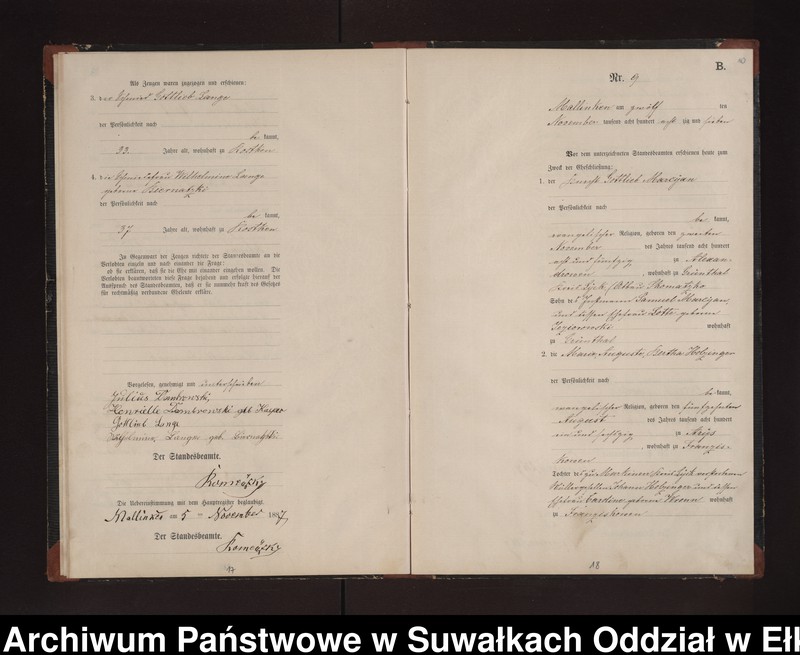 Als Zeugen waren zugezogen und erschienen:
3. der Schmied Gottlieb Lange
der Persönlichkeit nach
be kannt,
33 Jahre alt, wohnhaft zu Rosthen
4. die Schmiedefrau Wilhelmine Lange
geborne Biernatzki
der Persönlichkeit nach
be kannt,
37 Jahre alt, wohnhaft zu Rosthen
In Gegenwart der Zeugen richtete der Standesbeamte an die
Verlobten einzeln und nach einander die Frage:
ob sie erklären, daß sie die Ehe mit einander eingehen wollen. Die
Verlobten beantworteten diese Frage bejahend und erfolgte hierauf der
Ausspruch des Standesbeamten, daß er sie nunmehr kraft des Gesetzes
für rechtmäßig verbundene Eheleute erkläre.
Vorgelesen, genehmigt und unterschrieben
Julius Dombrowski
Henriette Dombrowski geb Kayser
Gottlieb Lange
Wilhelmine Lange geb. Biernatzki
Der Standesbeamte.
Die Uebereinstimmung mit dem Hauptregister beglaubigt
Mallinken am 5 ten November 1887
Der Standesbeamte.
17
B.
Nr. 9
Mallinken am zwölf ten
November tausend acht hundert acht zig und sieben
Vor dem unterzeichneten Standesbeamten erschienen heute zum
Zweck der Eheschließung:
1. der Knecht Gottlieb Marczjan
der Persönlichkeit nach
be kannt,
evangelischer Religion, geboren den zweiten
November des Jahres tausend acht hundert
acht und fünfzig zu Alexan-
drowen, wohnhaft zu Grünthal
Kreis Lyck
Sohn des Instmann Samuel Marczjan
und dessen Ehefrau Lotte geboren
wohnhaft
zu Grünthal
2. die Marie, Auguste, Bertha Holzinger
der Persönlichkeit nach
be kannt,
evangelischer Religion, geboren den fünfzehnten
August des Jahres tausend acht hundert
ein und sechzig zu Arys
, wohnhaft zu Franzis-
konen
Tochter des zu Kreis Lyck verstorbenen
Müllergesellen Johann Holzinger und dessen
Ehefrau Caroline geboren wohnhaft
zu Franziskonen
18
Archiwum Państwowe w Suwałkach Oddział w Ełk